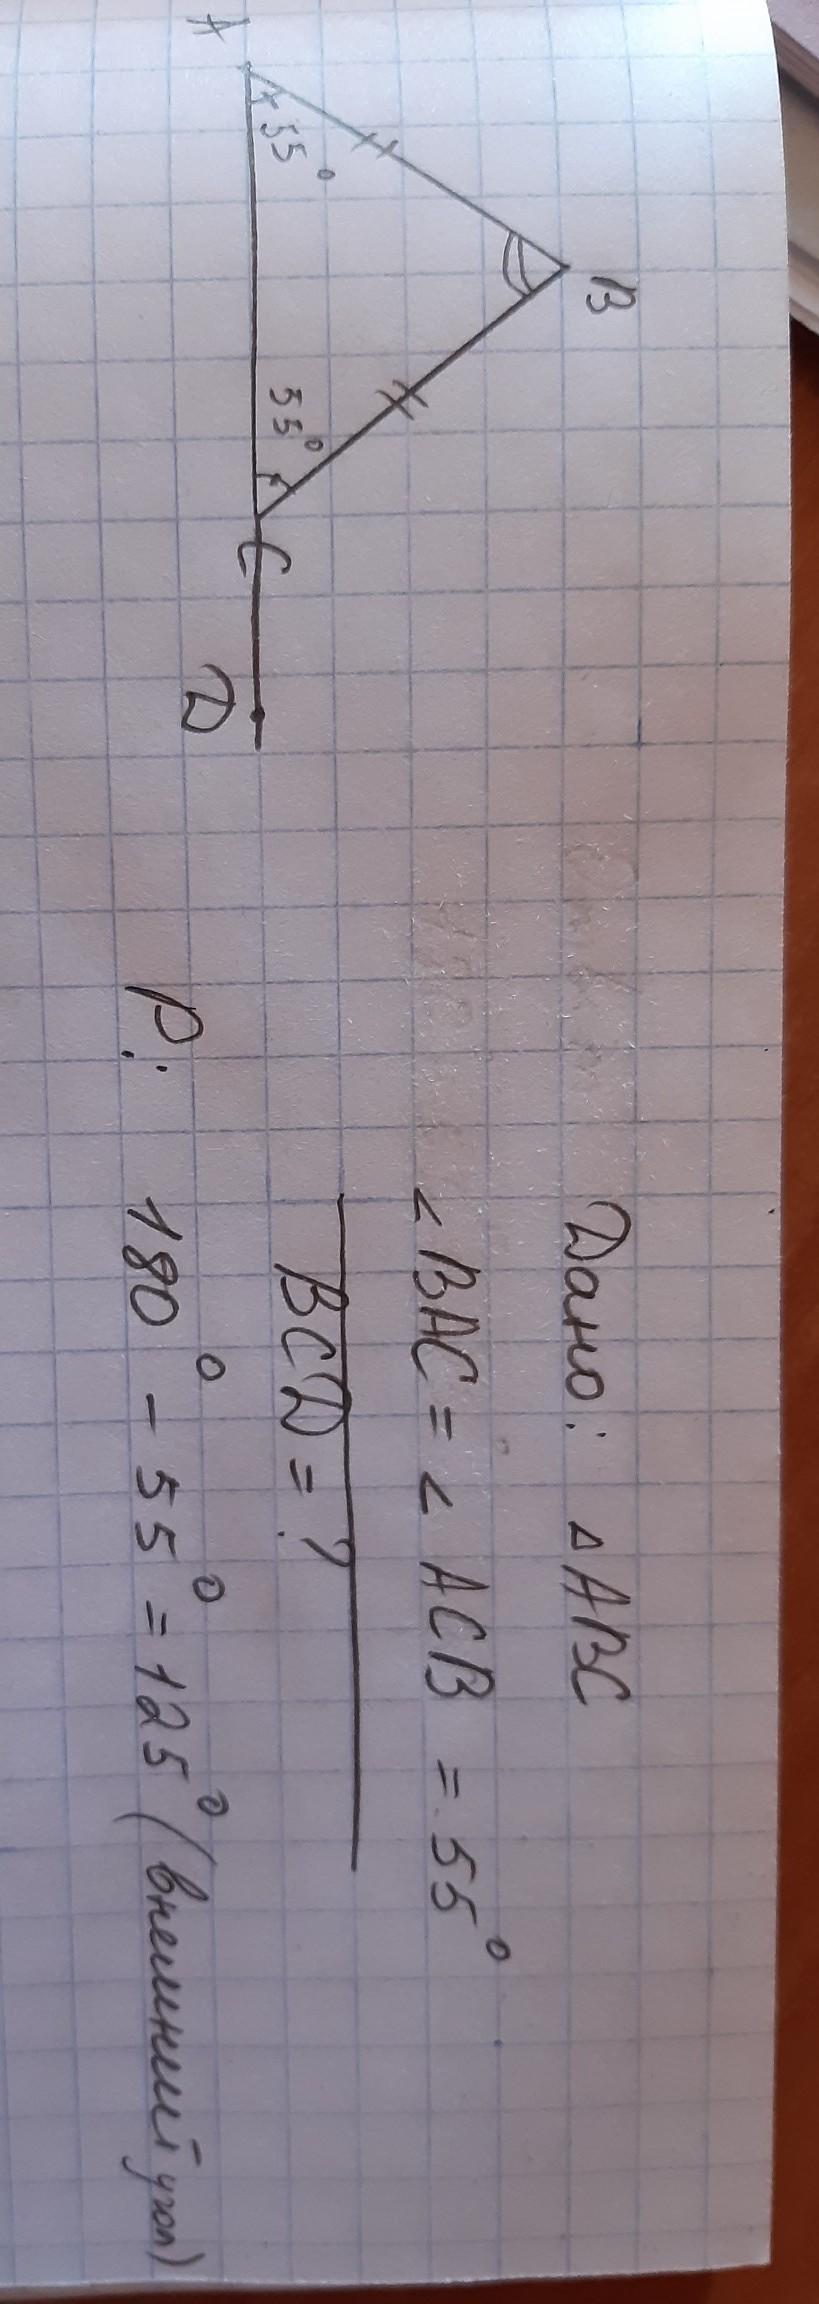 B
A
55°
55°
C
D
Дано: △ABC
∠BAC = ∠ACB = 55°
BCD = ?
Р: 180° - 55° = 125° (внешний угол)